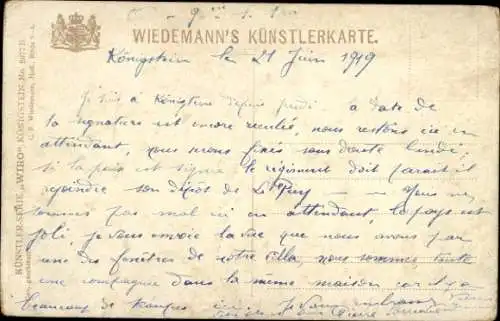 WIEDEMANN'S KÜNSTLERKARTE.
Königstein le 21 Juin 1919
Je suis à Königstein depuis jeudi. la date de
la signature est encore reculée, nous restons ici en
attendant, nous serons fixés sans doute lundi,
si la paix est signée le régiment doit paraît il
rejoindre son dépôt de Le Puy — Nous ne
sommes pas mal ici en attendant, le pays est
joli, je vous envoie la vue que nous avons par
une des fenêtres de notre villa, nous sommes toute
une compagnie dans la même maison car il y a
beaucoup de
Je vous embrasse
Pierre
KÜNSTLER-SERIE „WIRO“ KÖNIGSTEIN, No.
C. F. Wiedemann, Hofl.